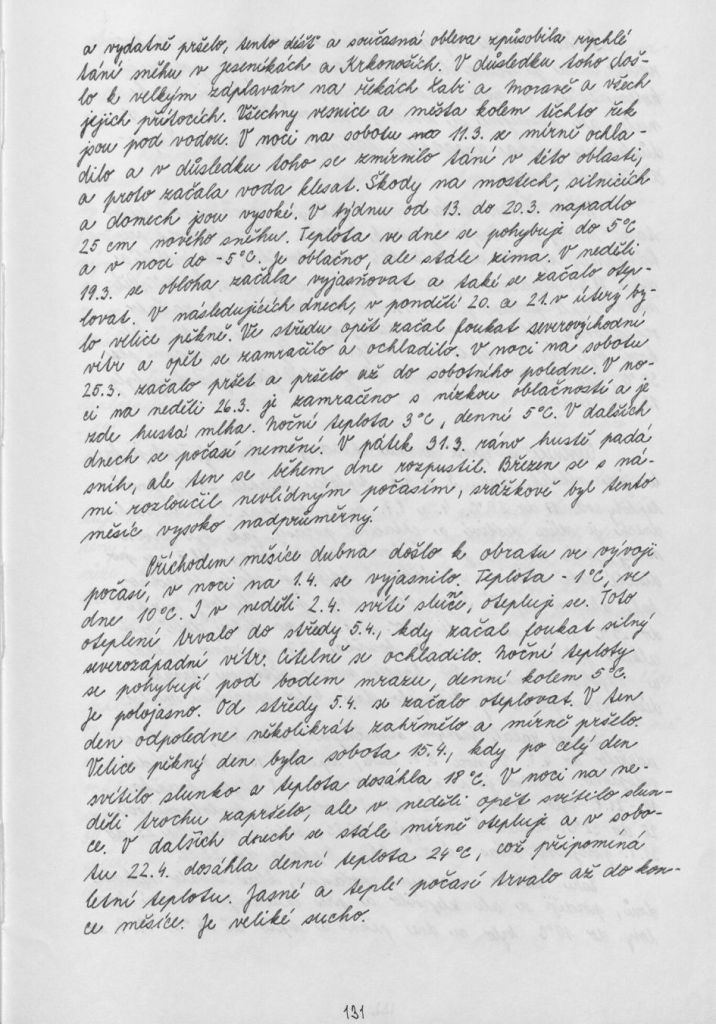 a vydatně pršelo, tento déšť a současná obleva způsobila rychlé
tání sněhu v Jeseníkách a Krkonoších. V důsledku toho doš-
lo k velkým záplavám na řekách Labi a Moravě a všech
jejich přítocích. Všechny vesnice a města kolem těchto řek
jsou pod vodou. V noci na sobotu 11.3. se mírně ochla-
dilo a v důsledku toho se zmírnilo tání v této oblasti,
a proto začala voda klesat. Škody na mostech, silnicích
a domech jsou vysoké. V týdnu od 13. do 20.3. napadlo
25 cm nového sněhu. Teplota ve dne se pohybuje do 5°C
a v noci do -5°C. Je oblačno, ale stále zima. V neděli
19.3. se obloha začala vyjasňovat a také se začalo otep-
lovat. V následujících dnech, v pondělí 20. a 21. v úterý by-
lo velice pěkně. Ve středu opět začal foukat severovýchodní
vítr a opět se zamračilo a ochladilo. V noci na sobotu
25.3. začalo pršet a pršelo až do sobotního poledne. V no-
ci na neděli 26.3. je zamračeno s nízkou oblačností a je
zde hustá mlha. Noční teplota 3°C, denní 5°C. V dalších
dnech se počasí nemění. V pátek 31.3. ráno hustě padá
sníh, ale ten se během dne rozpustil. Březen se s ná-
mi rozloučil nevlídným počasím, srážkově byl tento
měsíc vysoko nadprůměrný.
Příchodem měsíce dubna došlo k obratu ve vývoji
počasí, v noci na 1.4. se vyjasnilo. Teplota -1°C, ve
dne 10°C. I v neděli 2.4. svítí sluňe, otepluje se. Toto
oteplení trvalo do středy 5.4., kdy začal foukat silný
severozápadní vítr. Citelně se ochladilo. Noční teploty
se pohybují pod bodem mrazu, denní kolem 5°C.
Je polojasno. Od středy 5.4. se začalo oteplovat. V ten
den odpoledne několikrát zahřmělo a mírně pršelo.
Velice pěkný den byla sobota 15.4., kdy po celý den
svítilo slunko a teplota dosáhla 18°C. V noci na ne-
děli trochu zapršelo, ale v neděli opět svítilo slun-
ce. V dalších dnech se stále mírně otepluje a v sobo-
tu 22.4. dosáhla denní teplota 24°C, což připomíná
letní teplotu. Jasné a teplé počasí trvalo až do kon-
ce měsíce. Je veliké sucho.
131